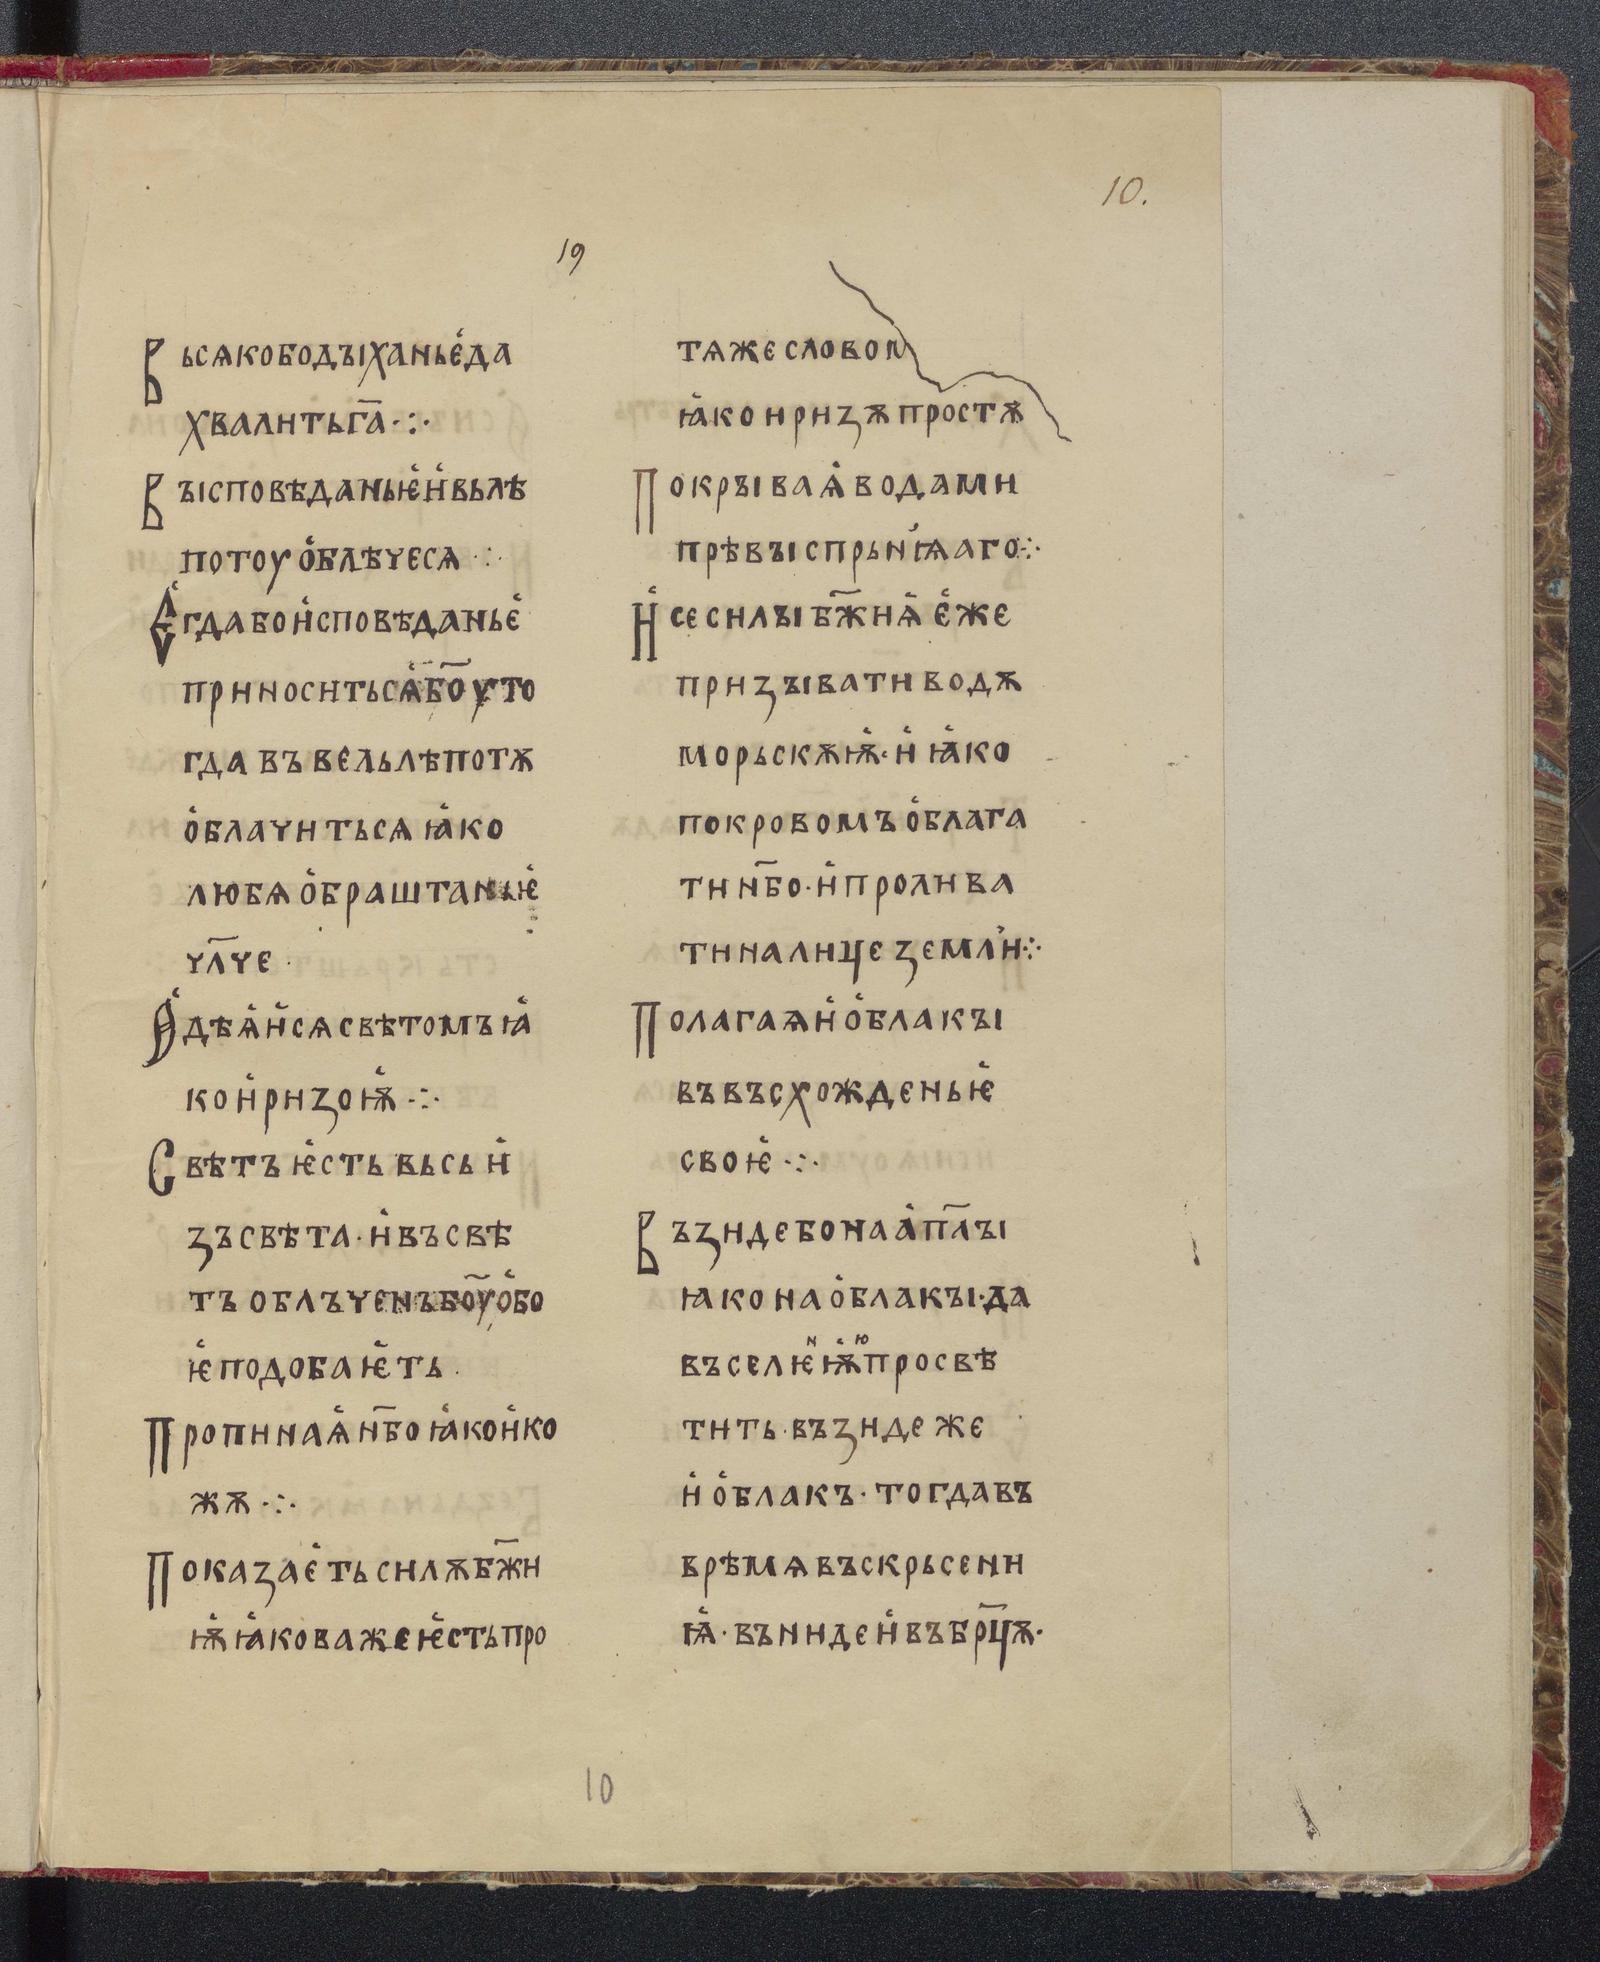 10.
19
Вьсѧкободъіханье҅да
хвалитьг҃а·:·
Въісповѣданьѥ҅и҅вьлѣ
потоуо҅блѣчесѧ·:
Е҅гдабои҅сповѣданье҅
приноситьсѧ҅б҃оуто
гдавъвельлѣпотѫ
о҅блачитьсѧꙗ҅ко
любѧо҅браштаньѥ҅
чл҃че·
О҅дѣѧ҅и҅сѧсвѣтомъꙗ҅
кои҅ризоѭ҅·:·
Свѣтъѥ҅стьвьсьи҅
зъсвѣта·и҅въсвѣ
тъоблъченъбо҃уо҅бо
ѥ҅подобаѥ҅ть·
Пропинаѧ҅н҃боꙗ҅кои҅ко
жѫ·:·
Показае҅тьсилѫбж҃и
ѭ҅ꙗ҅коважеѥ҅стьпро
тѧжесловом
ꙗ҅коиризѫпростѫ
Покръіваѧ҅водами
прѣвъіспрьнꙗ҅аго·:·
И҅сесилъібж҃иѧ҅е҅же
призъівативодѫ
морьскѫѭ҅·и҅ꙗ҅ко
покровомъо҅блага
тин҃бо·и҅пролива
тиналицеземл҄и·:·
Полагаѧи҅о҅блакъі
въвъсхожденьѥ҅
своѥ҅·:·
Възидебонаа҅пл҃ъі
ꙗконао҅блакъі·да
въселѥⷩ҇ѭ҅ⷻпросвѣ
тить·възидеже
и҅о҅блакъ·тогдавъ
врѣмѧвъскрьсени
ꙗ҅·вънидеи҅въбр҃цѫ·
10